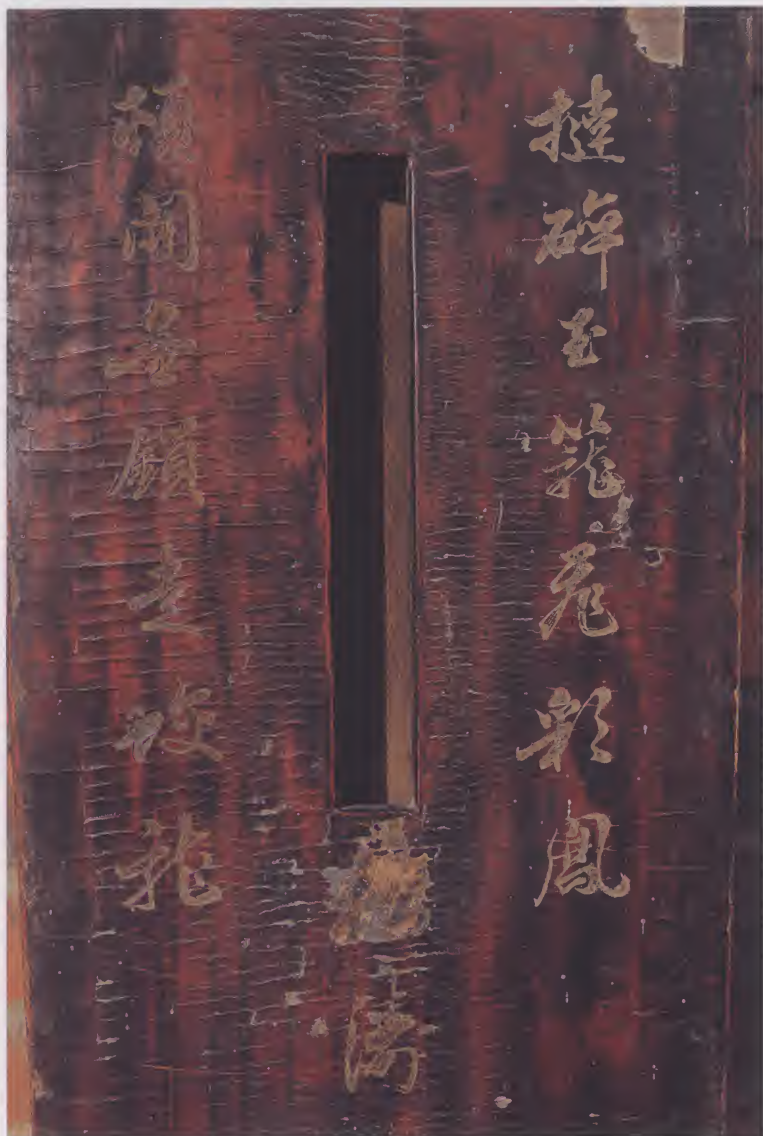 撻碎玉籠飛彩鳳
頓開金鎖走蛟龍
濤